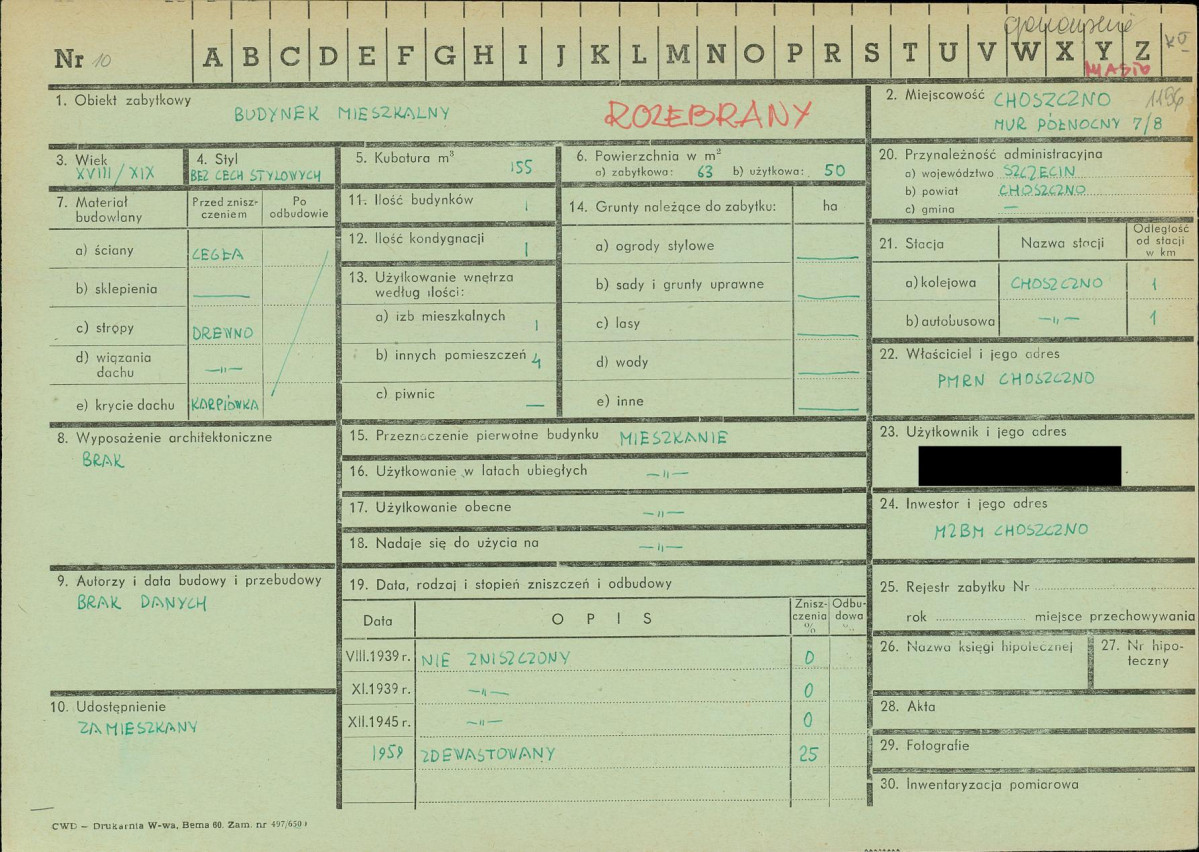 Nr 10
A B C D E F G H I J K L M N O P R S T U V W X Y Z
MIASTO
1. Obiekt zabytkowy
BUDYNEK MIESZKALNY
ROZEBRANY
2. Miejscowość CHOSZCZNO 1196
MUR PÓŁNOCNY 7/8
3. Wiek
XVIII/XIX
4. Styl
BEZ CECH STYLOWYCH
5. Kubatura m³ 155
6. Powierzchnia w m²
a) zabytkowa: 63 b) użytkowa: 50
20. Przynależność administracyjna
a) województwo SZCZECIN
b) powiat CHOSZCZNO
c) gmina —
7. Materiał budowlany
Przed zniszczeniem
Po odbudowie
a) ściany CEGŁA
b) sklepienia —
c) stropy DREWNO
d) wiązania dachu —"—
e) krycie dachu KARPIÓWKA
11. Ilość budynków 1
12. Ilość kondygnacji 1
13. Użytkowanie wnętrza
według ilości:
a) izb mieszkalnych 1
b) innych pomieszczeń 4
c) piwnic —
14. Grunty należące do zabytku: ha
a) ogrody stylowe —
b) sady i grunty uprawne —
c) lasy —
d) wody —
e) inne —
21. Stacja
Nazwa stacji
Odległość od stacji w km
a) kolejowa CHOSZCZNO 1
b) autobusowa —"— 1
22. Właściciel i jego adres
PMRN CHOSZCZNO
8. Wyposażenie architektoniczne
BRAK
15. Przeznaczenie pierwotne budynku MIESZKANIE
16. Użytkowanie w latach ubiegłych —"—
17. Użytkowanie obecne —"—
18. Nadaje się do użycia na —"—
23. Użytkownik i jego adres
24. Inwestor i jego adres
MZBM CHOSZCZNO
9. Autorzy i data budowy i przebudowy
BRAK DANYCH
19. Data, rodzaj i stopień zniszczeń i odbudowy
Data
OPIS
Zniszczenia %
Odbudowa %
VIII.1939 r. NIE ZNISZCZONY 0
XI.1939 r. —"— 0
XII.1945 r. —"— 0
1959 ZDEWASTOWANY 25
10. Udostępnienie
ZAMIESZKANY
25. Rejestr zabytku Nr
rok miejsce przechowywania
26. Nazwa księgi hipotecznej
27. Nr hipoteczny
28. Akta
29. Fotografie
30. Inwentaryzacja pomiarowa
CWD – Drukarnia W-wa, Bema 60. Zam. nr 497/650